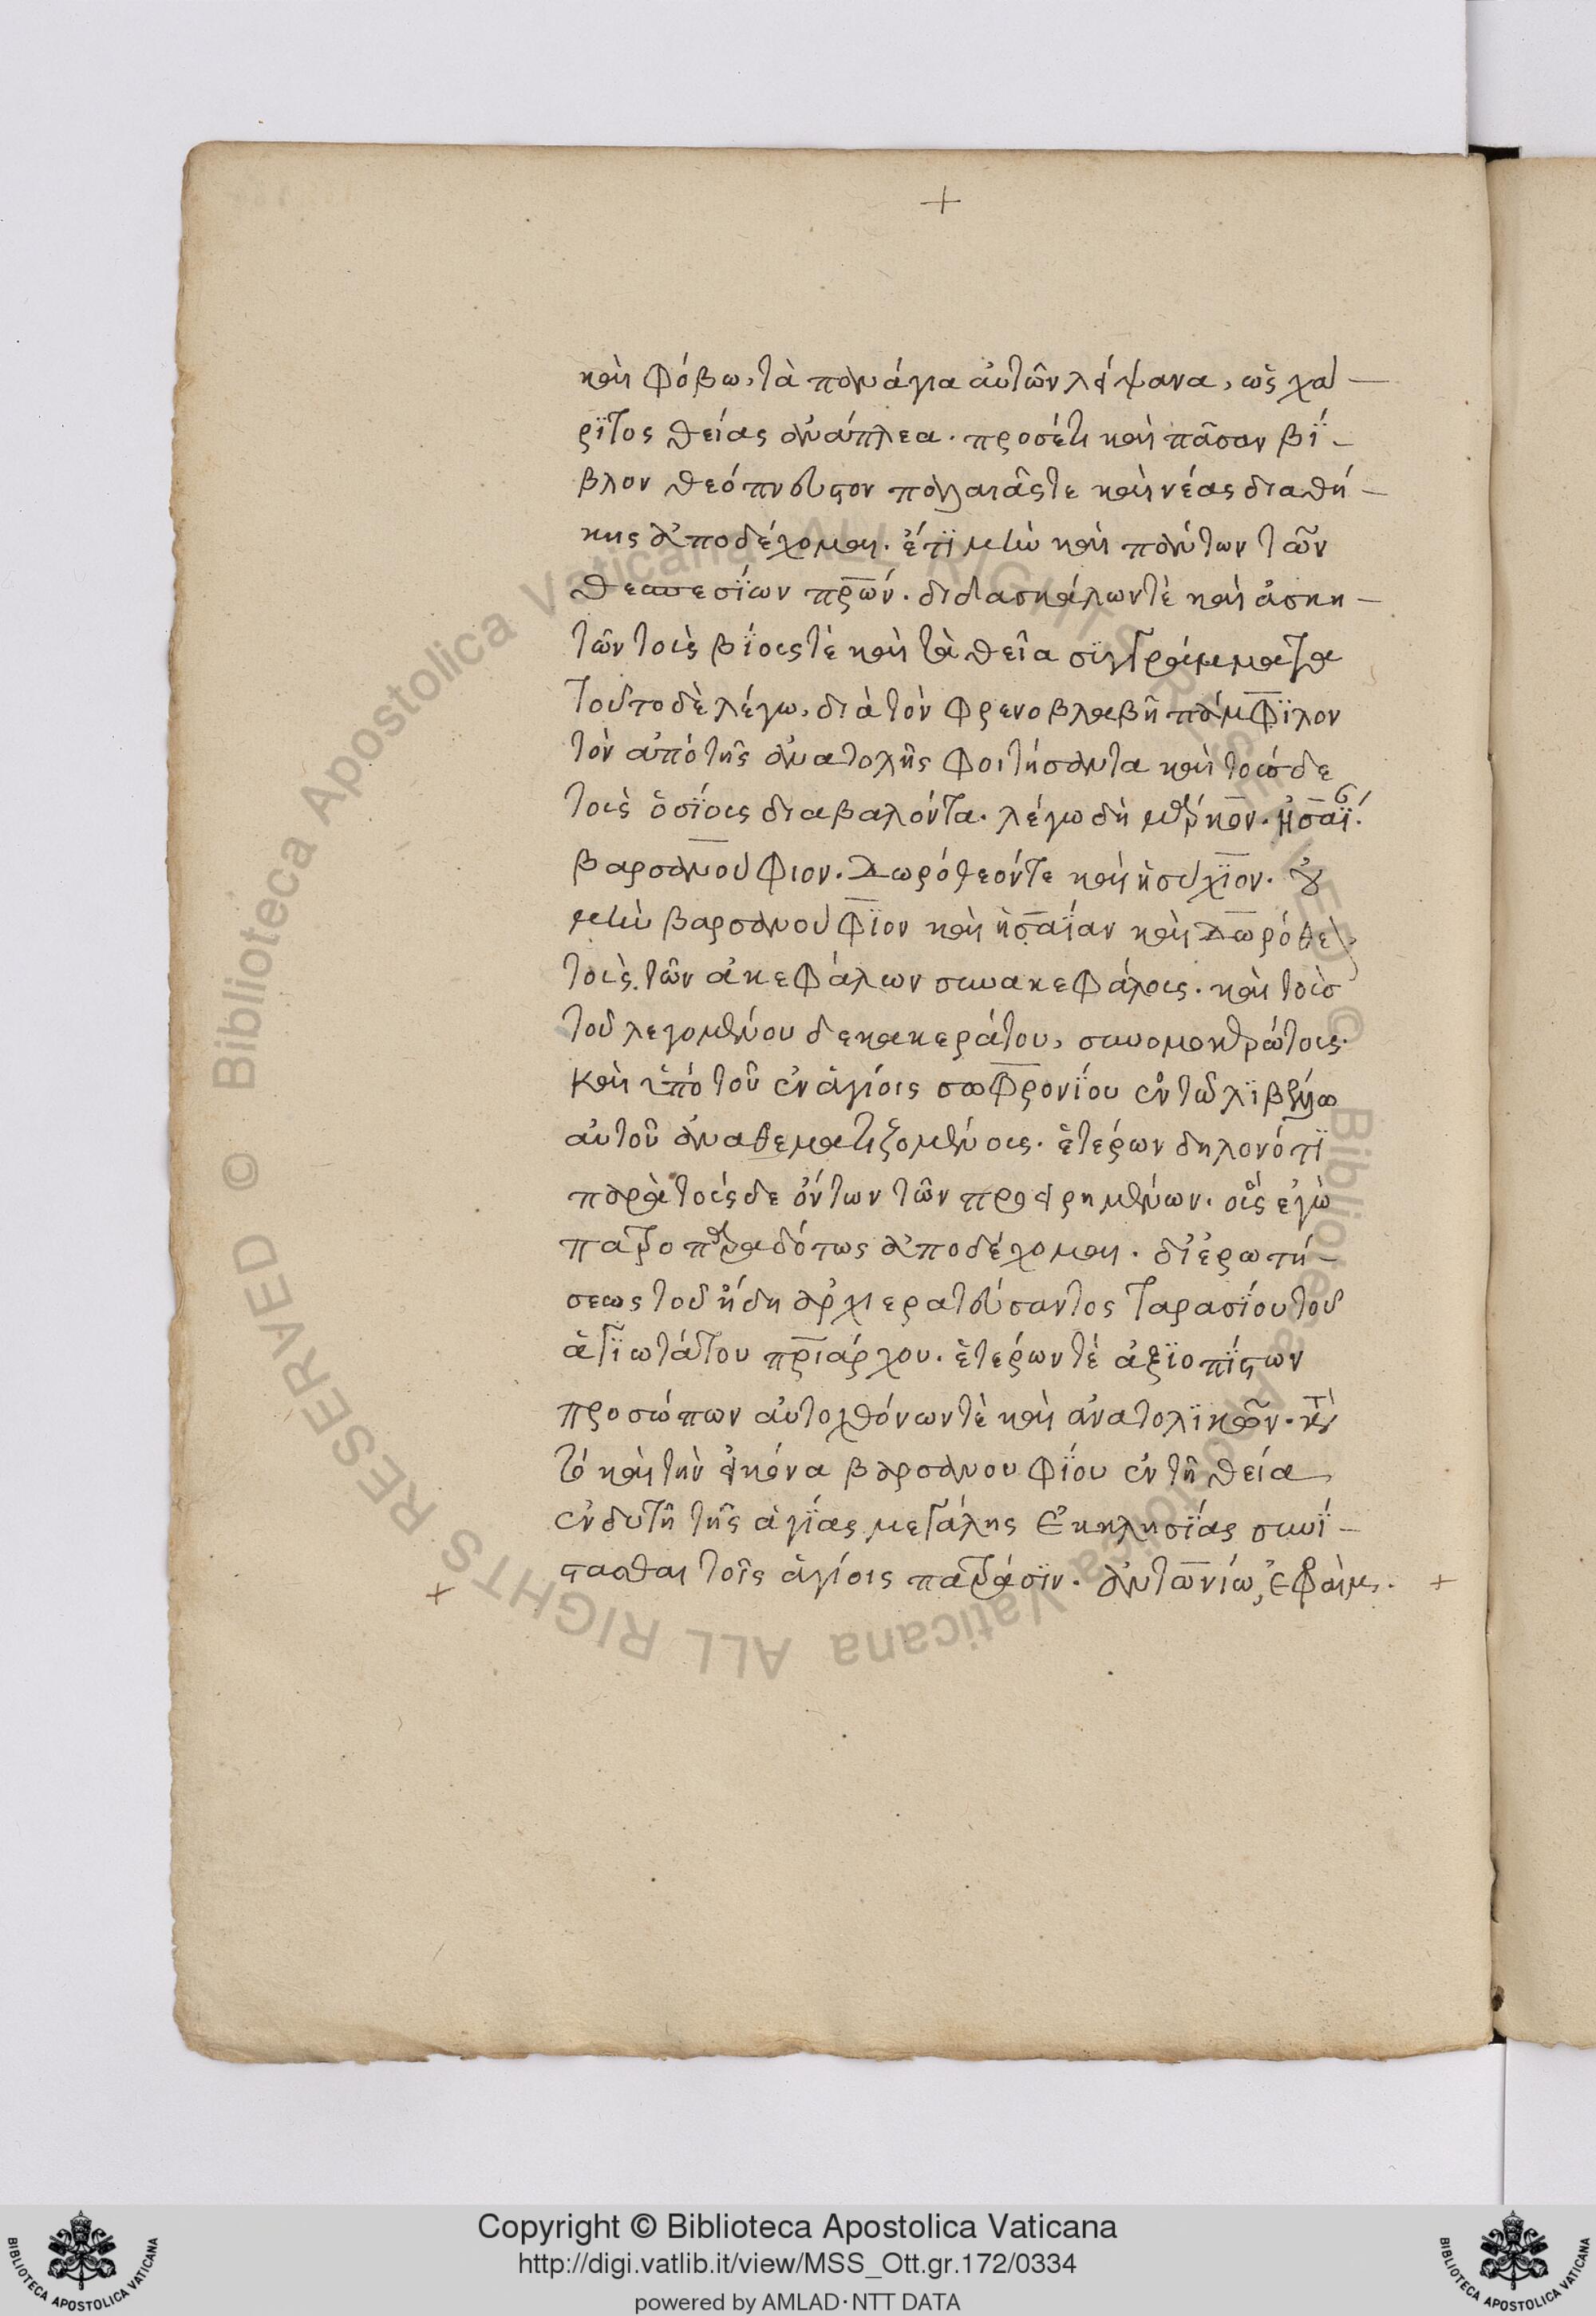 +
καὶ φόβω, τὰ πανάγια αὐτῶν λείψανα, ὡς χα
ρϊτος θείας ἀνάπλεα. προσέτι καὶ πᾶσαν βΐ-
βλον θεόπνευστον παλαιᾶς τε καὶ νέας διαθή-
κης ἀποδέχομαι. ἔτϊ μὴν καὶ πάντων τῶν
θεσπεσΐων πρ̅ων. διδασκάλων τὲ καὶ ἀσκη-
τῶν τοὺς βΐους τὲ καὶ τὰ θεῖα συγγράμματα
τοῦτο δὲ λέγω, διὰ τὸν φρενοβλαβῆ πάμφϊλον
τὸν ἀπὸ τῆς ἀνατολῆς φοιτήσαντα καὶ τούσδε
τοὺς ὁσΐους διαβαλόντα. λέγω δὴ μάρκον. ἡσαΐ.
βαρσανούφιον. Δωρόθεόν τε καὶ ἡσύχϊον. οὐ
μὴν βαρσανούφϊον καὶ ἡσαΐαν καὶ Δωρόθε
τοὺς τῶν ἀκεφάλων συνακεφάλους. καὶ τοὺσ
τοῦ λεγομένου δεκακεράτου, συνομοκεράτους.
Καὶ ὑπὸ τοῦ ἐν ἁγίοις σωφρονΐου ἐν τῶ λϊβέλλω
αὐτοῦ ἀναθεματιζομένους. ἑτέρων δηλονότϊ
παρὰ τούσδε ὄντων τῶν προειρημένων. οὓς ἐγὼ
πατροπαραδότως ἀποδέχομαι. δι' ἐρωτή-
σεως τοῦ ἤδη ἀρχιερατεύσαντος Ταρασΐου τοῦ
ἁγϊωτάτου πρ̅ιάρχου. ἑτέρων τὲ ἀξϊοπΐστων
προσώπων αὐτοχθόνων τὲ καὶ ἀνατολϊκῶν. κατὰ
τὸ καὶ τὴν εἰκόνα βαρσανουφΐου ἐν τῆ θεία
ἐνδυτῆ τῆς ἁγΐας μεγάλης Ἐκκλησΐας συνΐ-
στασθαι τοῖς ἁγίοις πατράσϊν. ἀντωνίω, Ἐφραὶμ.
+ +
Copyright © Biblioteca Apostolica Vaticana
http://digi.vatlib.it/view/MSS_Ott.gr.172/0334
powered by AMLAD·NTT DATA
BIBLIOTECA APOSTOLICA VATICANA
BIBLIOTECA APOSTOLICA VATICANA
© Biblioteca Apostolica Vaticana ALL RIGHTS RESERVED
© Biblioteca Apostolica Vaticana ALL RIGHTS RESERVED